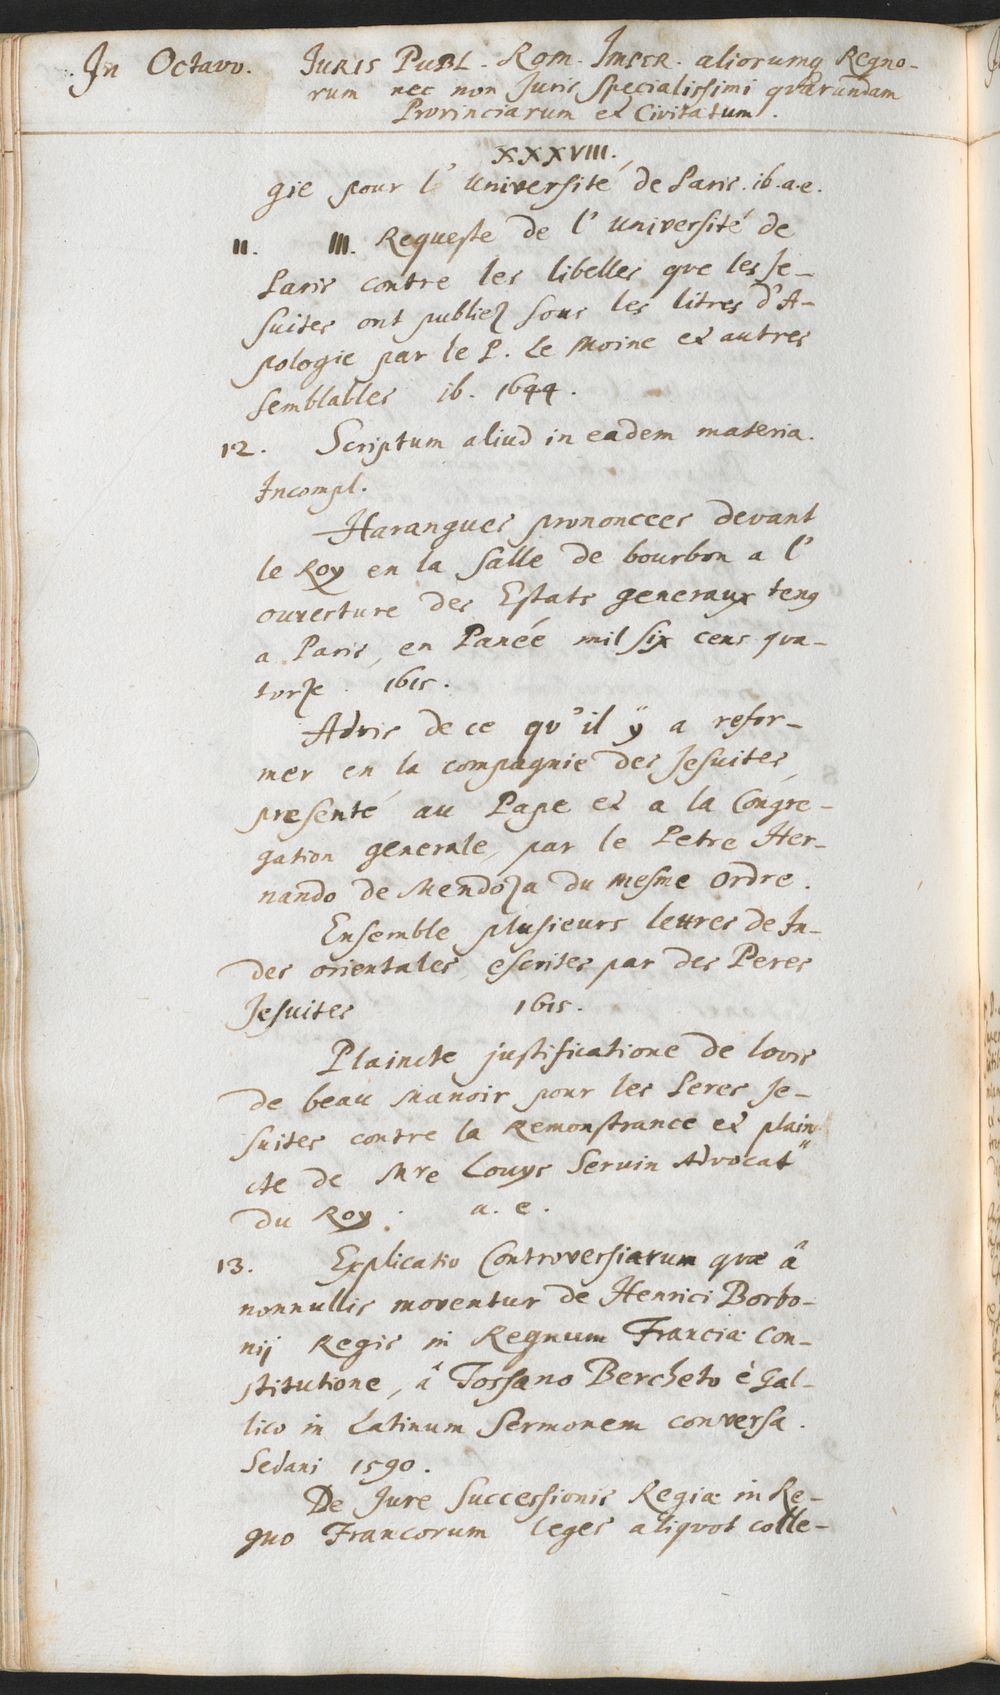 In Octavo. Juris Publ. Rom. Imper. aliorumq Regno-
rum nec non Juris Specialissimi quarundam
Provinciarum et Civitatum.
XXXVIII.
gie pour l' Université de Paris. ib. a. e.
11. III. Requeste de l' Université de
Paris contre les libelles que les Je-
suites ont publiez sous les titres d'A-
pologie par le P. Le Moine et autres
semblables ib. 1644.
12. Scriptum aliud in eadem materia.
Incompl.
Harangues prononcees devant
le Roy en la salle de bourbon a l'
ouverture des Estats generaux tenq
a Paris, en l'aneé mil six cens qua-
torze. 1615.
Advis de ce qu'il ÿ a refor-
mer en la compagnie des Jesuites,
presenté au Pape et a la Congre-
gation generale, par le Petre Her-
nando de Mendoza du mesme ordre.
Ensemble plusieurs lettres de In-
des orientales, escrites par des Peres
Jesuites 1615.
Plaincte justificatione de lovis
de beau Manoir pour les Peres Je-
suites contre la Remonstrance et plain-
cte de Mre Louys Servin Advocat
du Roy. a. e.
13. Explicatio Controversiarum quæ â
nonnullis moventur de Henrici Borbo-
nij Regis in Regnum Franciæ con-
stitutione, â Tossano Bercheto è Gal-
lico in Latinum Sermonem conversa.
Sedani 1590.
De Jure Successionis Regiæ in Re-
gno Francorum leges aliquot colle-